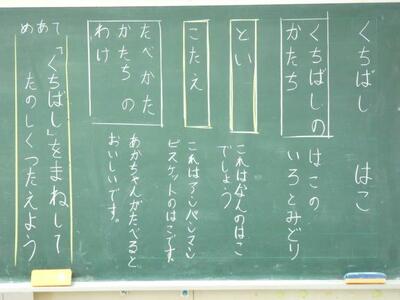 くちばし
はこ
くちばしの
かたち
はこの
いろとみどり
とい
これはなんのはこ
でしょう
こたえ
これはアンパンマン
ビスケットのはこです。
たべかた
かたちの
わけ
あかちゃんがたべると
おいしいです。
めあて
「くちばし」をまねして
たのしくつたえよう